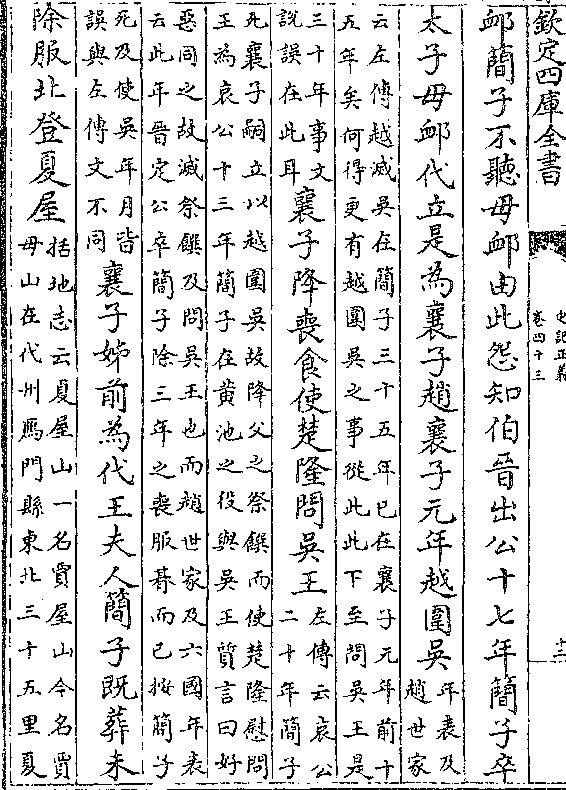 欽定四庫全書
史記正義
卷四十三
十二
卹簡子不聽毋卹由此怨知伯晉出公十七年簡子卒
太子毋卹代立是為襄子趙襄子元年越圍吳
年表及
趙世家
云左傳越滅吳在簡子三十五年已在襄子元年前十
五年矣何得更有越圍吳之事從此此下至問吳王是
三十年事文
說誤在此耳
襄子降喪食使楚隆問吳王
左傳云哀公
二十年簡子
死襄子嗣立以越圍吳故降父之祭饌而使楚隆慰問
王為哀公十三年簡子在黃池之役與吳王質言曰好
惡同之故減祭饌及問吳王也而趙世家及六國年表
云此年晉定公卒簡子除三年之喪服朞而已按簡子
死及使吳年月皆
誤與左傳文不同
襄子姊前為代王夫人簡子既葬未
除服北登夏屋
括地志云夏屋山一名賈屋山今名賈
母山在代州鴈門縣東北三十五里夏